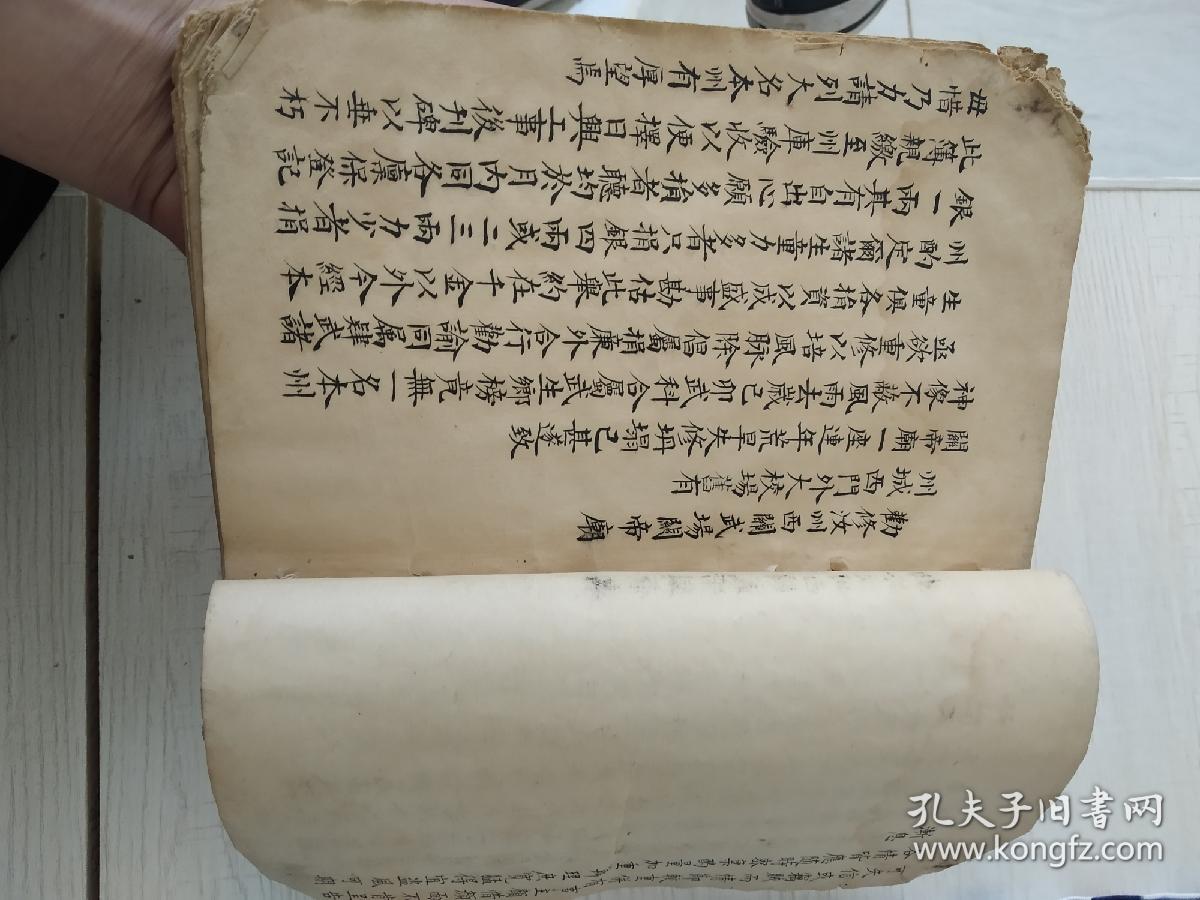 勸修汝州西關武場關帝廟
州城西門外大校場舊有
關帝廟一座連年荒旱失修坍塌已甚遂致
神像不蔽風雨去歲己卯武科合屬武生鄉榜竟無一名本州
亟欲重修以培風脉除倡屬捐廉外合行勸諭同屬肄武諸
生童俱各捐資以成盛事勘估此舉約在千金以外今經本
州酌定爾諸生童力多者只捐銀四兩或二三兩力少者捐
銀一兩其有自出心願多捐者聽均於月內同各廩保登記
此簿親繳至州庫驗收以便擇日興工事後刊碑以垂不朽
毋惜乃力請列大名本州有厚望焉
漸息
孔夫子旧书网
www.kongfz.com